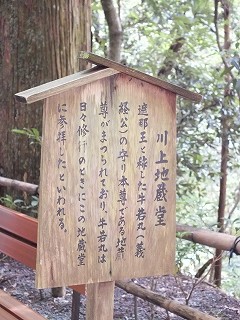 川上地蔵堂
遮那王と称した牛若丸（義
経公）の守り本尊である地蔵
尊がまつられており、牛若丸は
日々修行のときにこの地蔵堂
に参拝したといわれる。